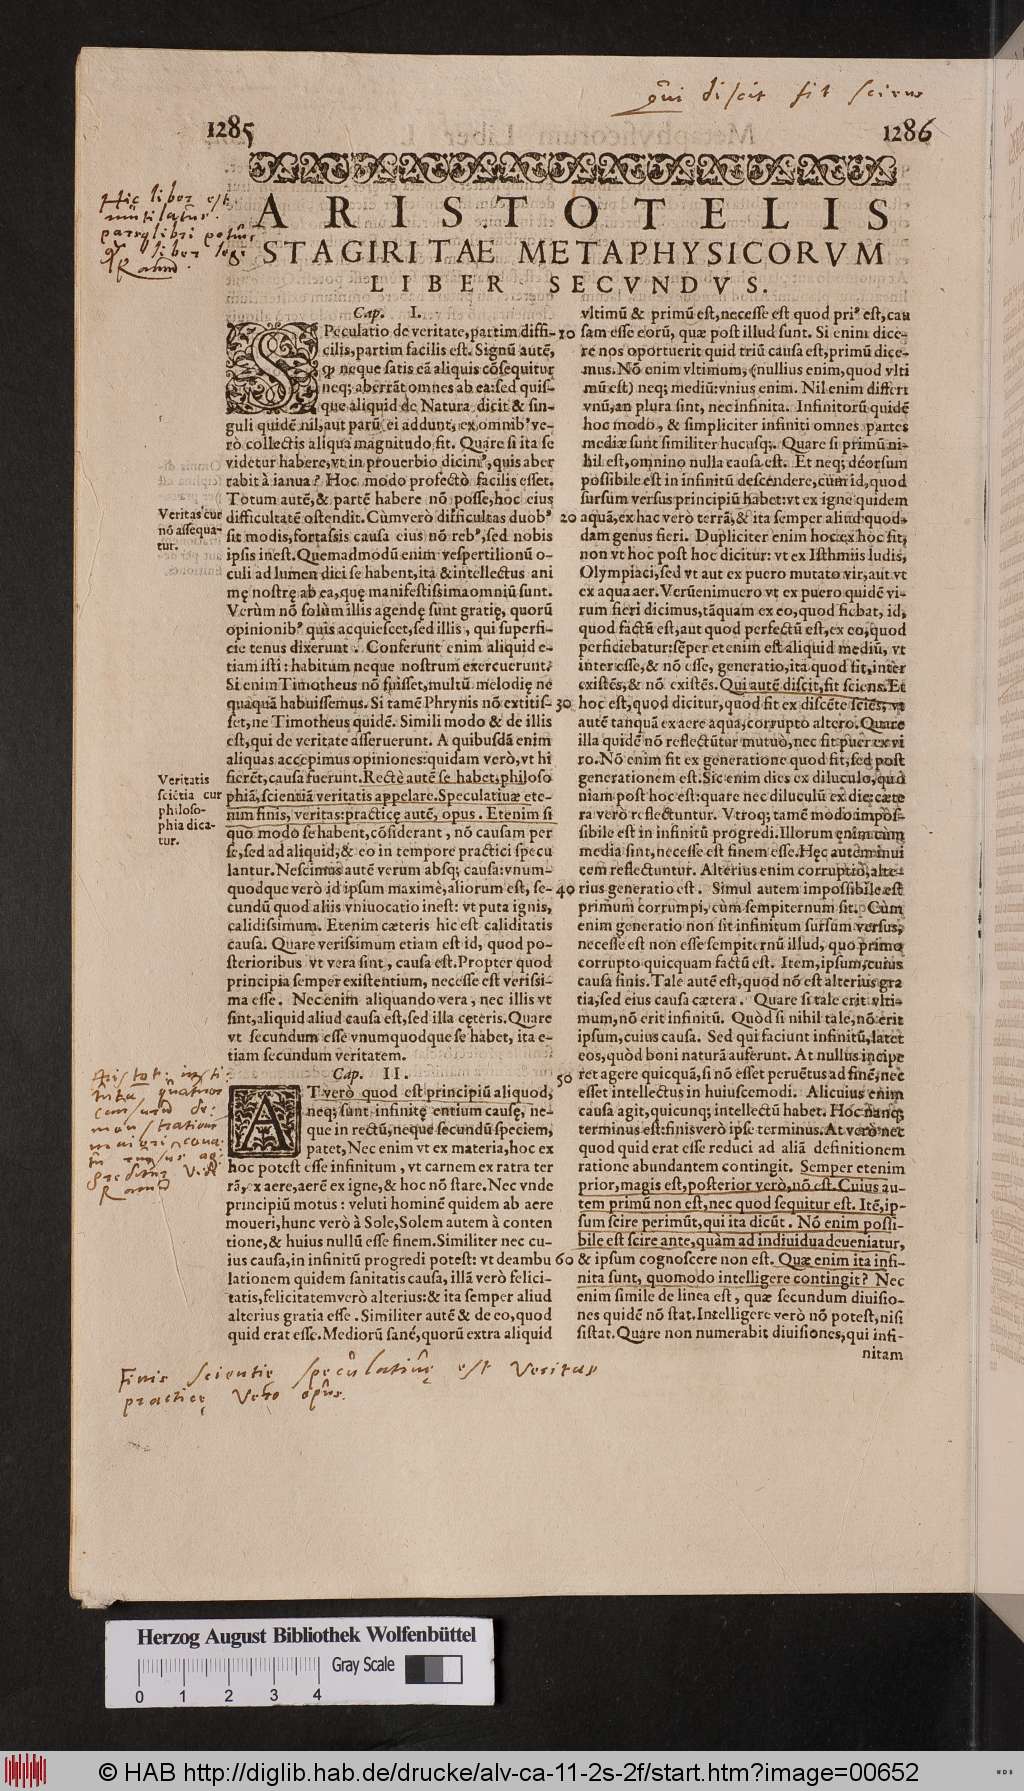 Qui discit fit sciens
1285
1286
Hic liber est
mutilatus.
ARISTOTELIS
STAGIRITAE METAPHYSICORVM
LIBER SECVNDVS.
Cap. I.
SPeculatio de veritate, partim diffi-
cilis, partim facilis est. Signũ autẽ,
neque satis eã aliquis cõsequitur
neq; aberrãt omnes ab ea: sed quis-
que aliquid de Natura dicit & sin-
guli quidẽ nil, aut parũ ei addunt, ex omnibꝰ ve-
rò collectis aliqua magnitudo fit. Quare si ita se
videtur habere, vt in prouerbio dicimꝰ, quis aber
rabit à ianua? Hoc modo profectò facilis esset.
Totum autẽ, & partẽ habere nõ posse, hoc eius
difficultatẽ ostendit. Cùmverò difficultas duobꝰ
sit modis, fortassis causa eius nõ rebꝰ, sed nobis
ipsis inest. Quemadmodũ enim vespertilionũ o-
culi ad lumen diei se habent, ita & intellectus ani
mę nostrę ab ea, quę manifestissima omniũ sunt.
Verùm nõ solùm illis agendę sunt gratię, quorũ
opinionibꝰ quis acquiescet, sed illis, qui superfi-
cie tenus dixerunt. Conferunt enim aliquid e-
tiam isti: habitum neque nostrum exercuerunt.
Si enim Timotheus nõ fuisset, multũ melodię ne
quaquã habuissemus. Si tamẽ Phrynis nõ extitis-
set, ne Timotheus quidẽ. Simili modo & de illis
est, qui de veritate asseruerunt. A quibusdã enim
aliquas accepimus opiniones: quidam verò, vt hi
fierẽt, causa fuerunt. Rectè autẽ se habet, philoso
phiã, scientiã veritatis appelare. Speculatiuæ ete-
nim finis, veritas: practicę autẽ, opus. Etenim si
quo modo se habent, cõsiderant, nõ causam per
se, sed ad aliquid, & eo in tempore practici specu
lantur. Nescimus autẽ verum absq; causa: vnum-
quodque verò id ipsum maximè, aliorum est, se-
cundũ quod aliis vniuocatio inest: vt puta ignis,
calidissimum. Etenim cæteris hic est caliditatis
causa. Quare verissimum etiam est id, quod po-
sterioribus vt vera sint, causa est. Propter quod
principia semper existentium, necesse est verissi-
ma esse. Nec enim aliquando vera, nec illis vt
sint, aliquid aliud causa est, sed illa cęteris. Quare
vt secundum esse vnumquodque se habet, ita e-
tiam secundum veritatem.
Cap. II.
AT verò quod est principiũ aliquod,
neq; sunt infinitę entium causę, ne-
que in rectũ, neque secundũ speciem,
patet, Nec enim vt ex materia, hoc ex
hoc potest esse infinitum, vt carnem ex ratra ter
rã, ex aere, aerẽ ex igne, & hoc nõ stare. Nec vnde
principiũ motus: veluti hominẽ quidem ab aere
moueri, hunc verò à Sole, Solem autem à conten
tione, & huius nullũ esse finem. Similiter nec cu-
ius causa, in infinitũ progredi potest: vt deambu
lationem quidem sanitatis causa, illã verò felici-
tatis, felicitatem verò alterius: & ita semper aliud
alterius gratia esse. Similiter autẽ & de eo, quod
quid erat esse. Mediorũ sanè, quorũ extra aliquid
Veritas cur
nõ assequa-
tur.
Veritatis
sciẽtia cur
philoso-
phia dica-
tur.
10
20
30
40
50
60
vltimũ & primũ est, necesse est quod priꝰ est, cau
sam esse eorũ, quæ post illud sunt. Si enim dice-
re nos oportuerit quid triũ causa est, primũ dice-
mus. Nõ enim vltimum, (nullius enim, quod vlti
mũ est) neq; mediũ: vnius enim. Nil enim differt
vnũ, an plura sint, nec infinita. Infinitorũ quidẽ
hoc modo, & simpliciter infiniti omnes partes
mediæ sunt similiter hucusq;. Quare si primũ ni-
hil est, omnino nulla causa est. Et neq; déorsum
possibile est in infinitũ descendere, cùm id, quod
sursum versus principiũ habet: vt ex igne quidem
aquã, ex hac verò terrã, & ita semper aliud quod-
dam genus fieri. Dupliciter enim hoc ex hoc fit,
non vt hoc post hoc dicitur: vt ex Isthmiis ludis,
Olympiaci, sed vt aut ex puero mutato vir, aut vt
ex aqua aer. Verũenimuero vt ex puero quidẽ vi-
rum fieri dicimus, tãquam ex eo, quod fiebat, id,
quod factũ est, aut quod perfectũ est, ex eo, quod
perficiebatur: sẽper etenim est aliquid mediũ, vt
inter esse, & nõ esse, generatio, ita quod fit, inter
existẽs, & nõ existẽs. Qui autẽ discit, fit sciens. Et
hoc est, quod dicitur, quod fit ex discẽte sciẽs, vt
autẽ tanquã ex aere aqua, corrupto altero. Quare
illa quidẽ nõ reflectũtur mutuò, nec fit puer ex vi
ro. Nõ enim fit ex generatione quod fit, sed post
generationem est: Sic enim dies ex diluculo, quo
niam post hoc est: quare nec diluculũ ex die: cæte
ra verò reflectuntur. Vtroq; tamẽ modo impos-
sibile est in infinitũ progredi. Illorum enim cùm
media sint, necesse est finem esse. Hęc autem inui
cem reflectuntur. Alterius enim corruptio, alte-
rius generatio est. Simul autem impossibile est
primum corrumpi, cùm sempiternum sit. Cùm
enim generatio non sit infinitum sursum versus,
necesse est non esse sempiternũ illud, quo primo
corrupto quicquam factũ est. Item, ipsum, cuius
causa finis. Tale autẽ est, quod nõ est alterius gra
tia, sed eius causa cætera. Quare si tale erit vlti-
mum, nõ erit infinitũ. Quòd si nihil tale, nõ erit
ipsum, cuius causa. Sed qui faciunt infinitũ, latet
eos, quòd boni naturã auferunt. At nullus incipe
ret agere quicquã, si nõ esset peruẽtus ad finẽ, nec
esset intellectus in huiuscemodi. Alicuius enim
causa agit, quicunq; intellectũ habet. Hoc nanq;
terminus est: finis verò ipse terminus. At verò nec
quod quid erat esse reduci ad aliã definitionem
ratione abundantem contingit. Semper etenim
prior, magis est, posterior verò, nõ est. Cuius au-
tem primũ non est, nec quod sequitur est. Itẽ, ip-
sum scire perimũt, qui ita dicũt. Nõ enim possi-
bile est scire ante, quàm ad indiuidua deueniatur,
& ipsum cognoscere non est. Quæ enim ita infi-
nita sunt, quomodo intelligere contingit? Nec
enim simile de linea est, quæ secundum diuisio-
nes quidẽ nõ stat. Intelligere verò nõ potest, nisi
sistat. Quare non numerabit diuisiones, qui infi-
nitam
Finis scientię speculatiuę est Veritas
practicę Vero opus.
Herzog August Bibliothek Wolfenbüttel
Gray Scale
0 1 2 3 4
© HAB http://diglib.hab.de/drucke/alv-ca-11-2s-2f/start.htm?image=00652